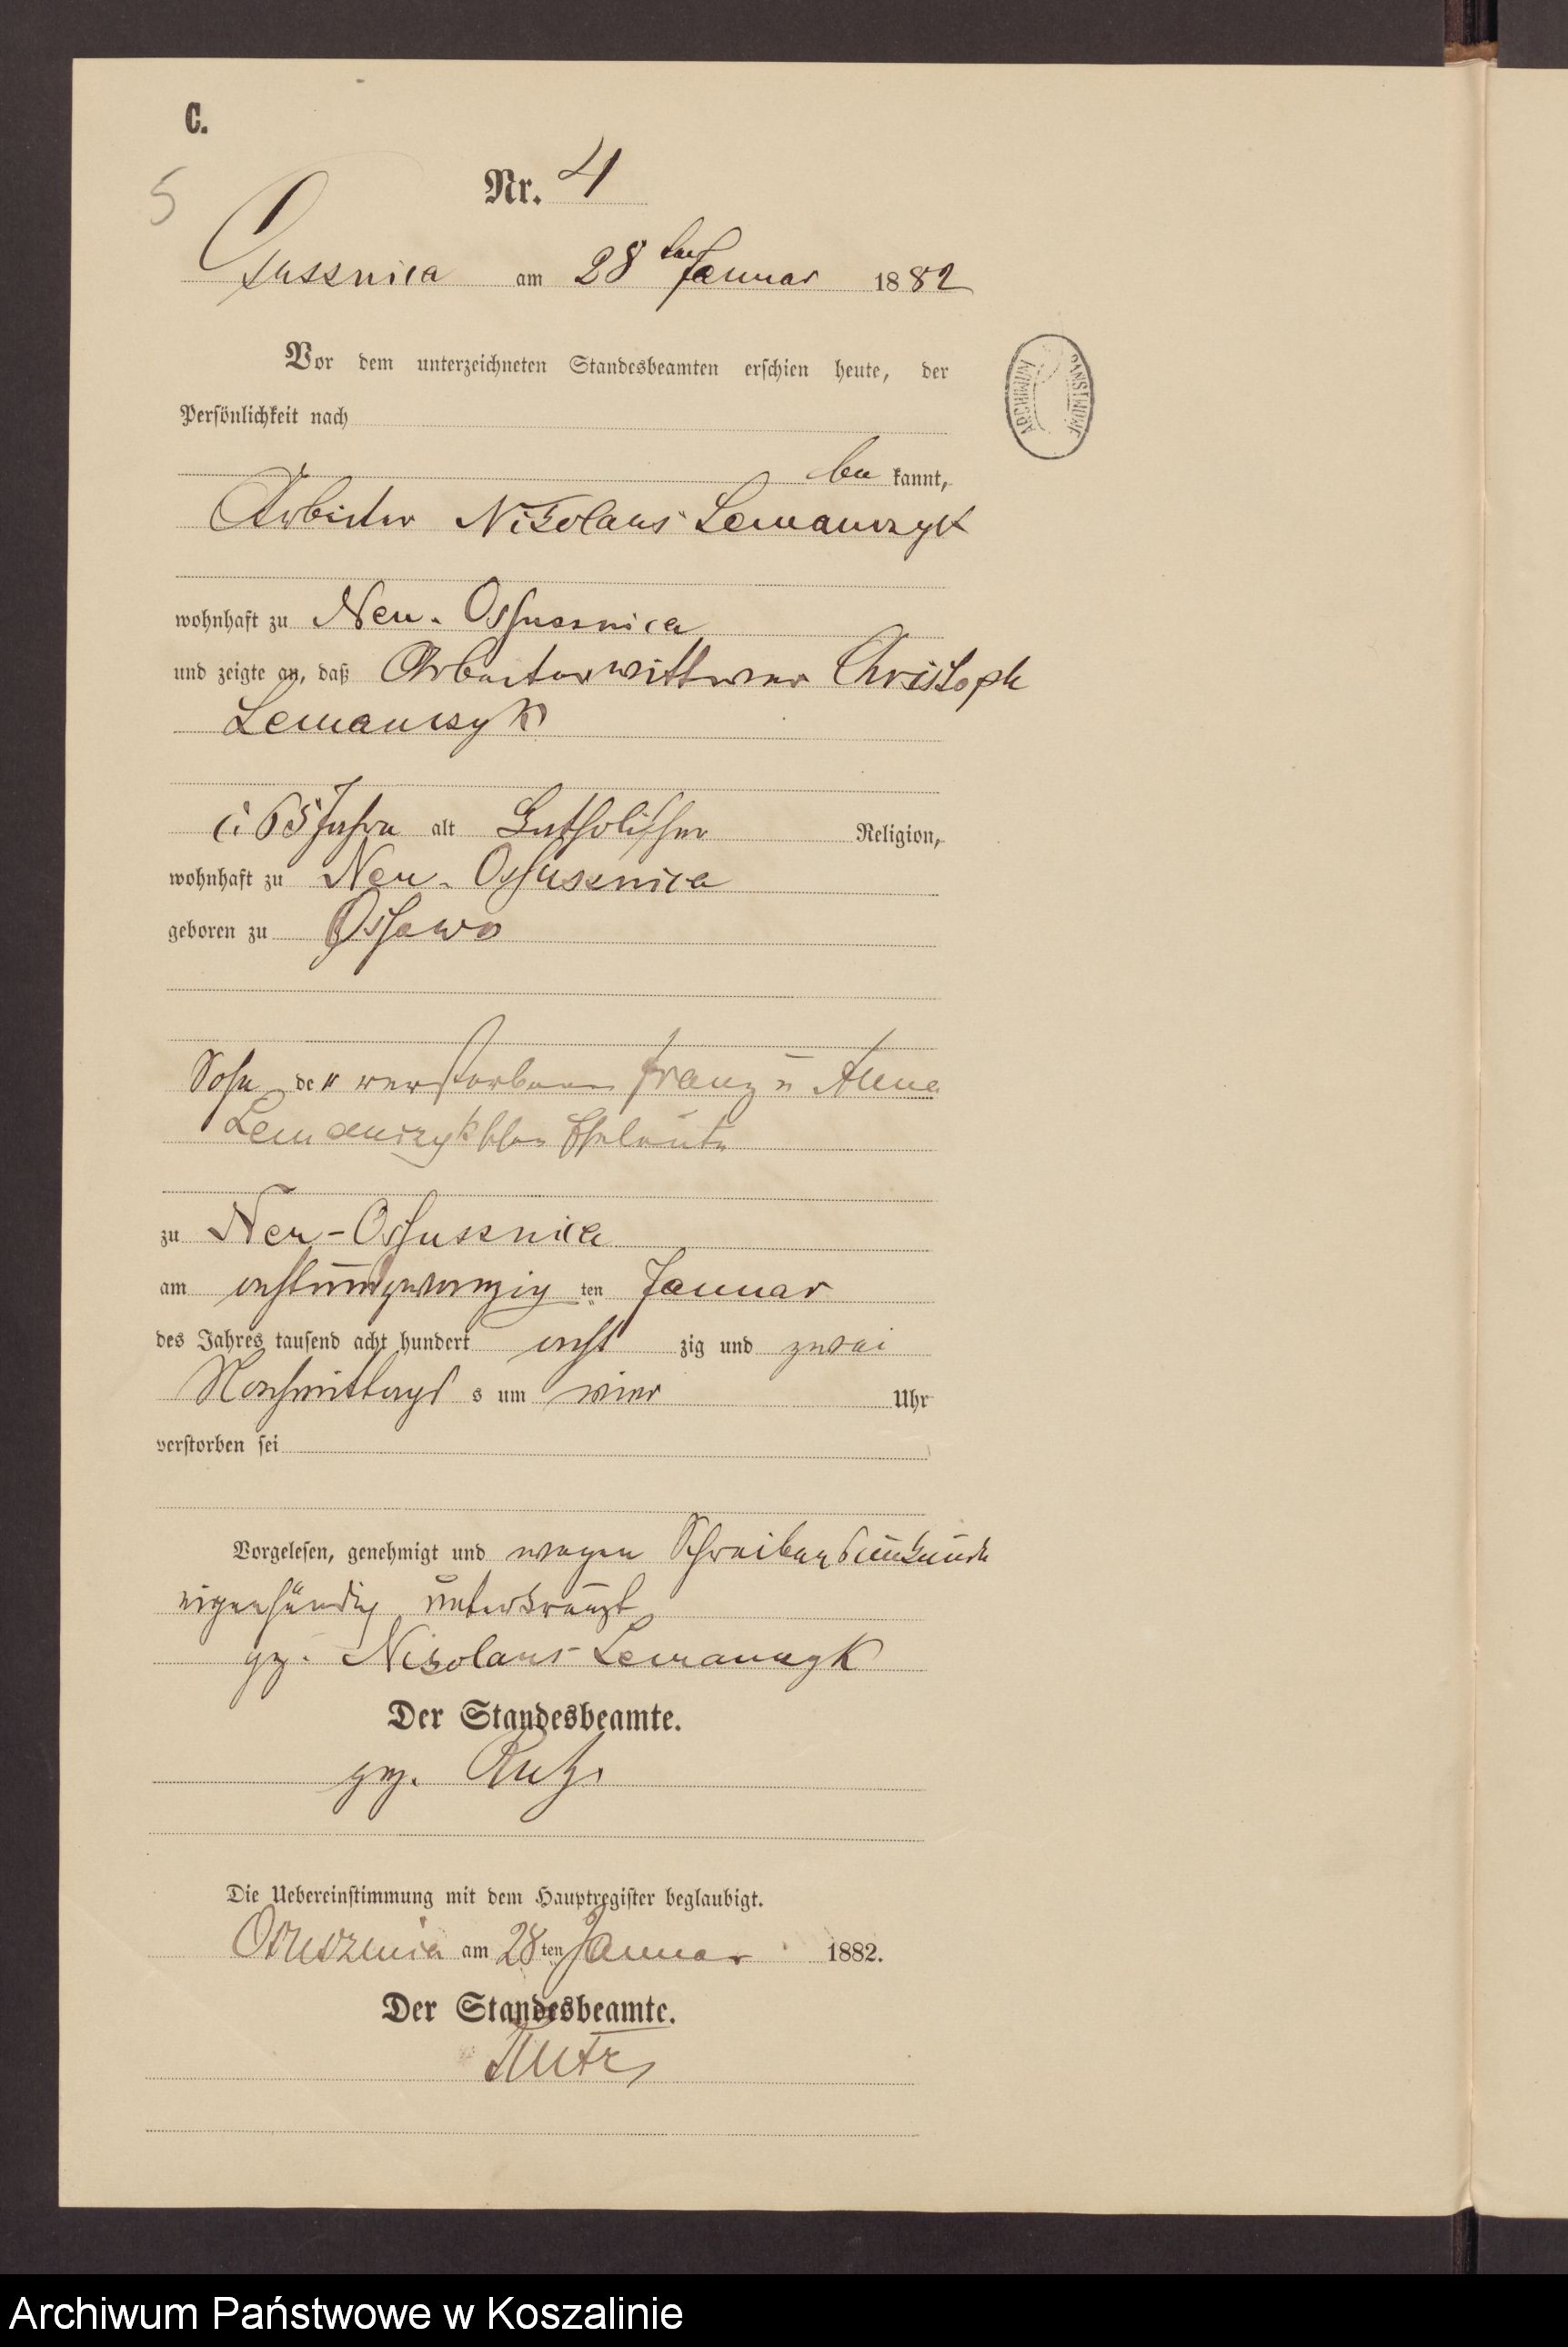 C.
5
Nr. 4
am 28 ten Januar 1882
Vor dem unterzeichneten Standesbeamten erschien heute, der
Persönlichkeit nach
be kannt,
Arbeiter Nikolaus Lemanczyk
wohnhaft zu Neu-Ossussnica
und zeigte an, daß Arbeiterwittwer Christoph
Lemanczyk
65 Jahre alt katholischer Religion,
wohnhaft zu Neu-Ossussnica
geboren zu Ossowo
Sohn der verstorbenen Franz u Anna
Lemanczykschen Eheleute
zu Neu-Ossussnica
am achtundzwanzig ten Januar
des Jahres tausend acht hundert acht zig und zwei
Nachmittags s um vier Uhr
verstorben sei
Vorgelesen, genehmigt und wegen Schreibensunkunde
eigenhändig unterkreuzt
gez. Nikolaus Lemanczyk
Der Standesbeamte.
gez.
Die Uebereinstimmung mit dem Hauptregister beglaubigt.
am 28 ten Januar 1882.
Der Standesbeamte.
ARCHIWUM PAŃSTWOWE
Archiwum Państwowe w Koszalinie